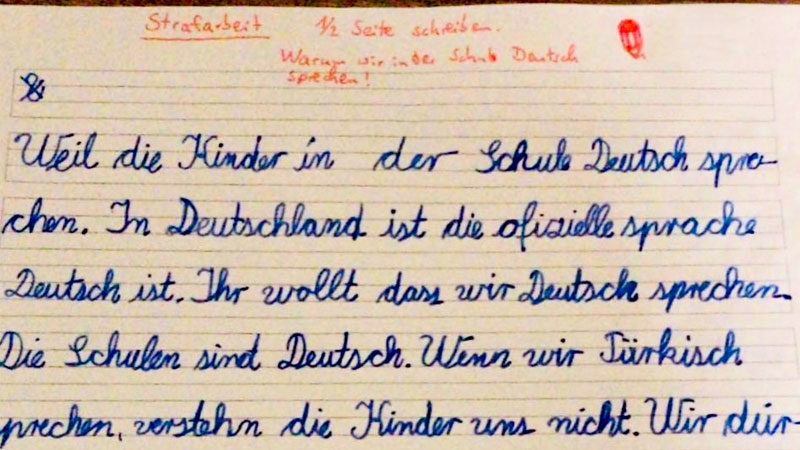 Strafarbeit 1/2 Seite schreiben.
Warum wir in der Schule Deutsch
sprechen!
Weil die Kinder in der Schule Deutsch spre-
chen. In Deutschland ist die ofizielle sprache
Deutsch ist. Ihr wollt dass wir Deutsch sprechen.
Die Schulen sind Deutsch. Wenn wir Türkisch
sprechen, verstehn die Kinder uns nicht. Wir dür-